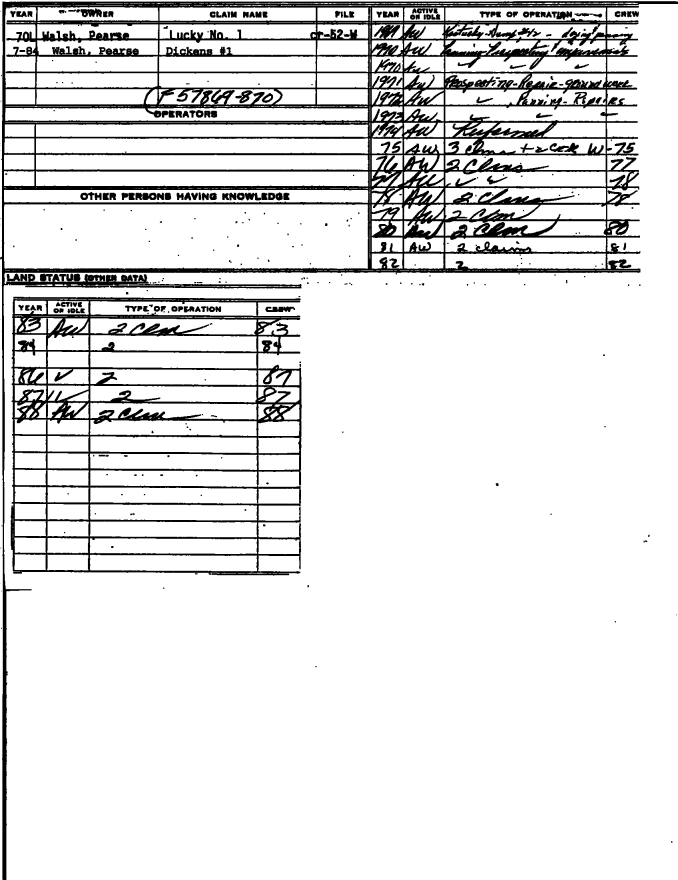 YEAR OWNER CLAIM NAME FILE
70L Walsh, Pearse Lucky No. 1 cr-52-W
7-84 Walsh, Pearse Dickens #1
(F 57869-870)
OPERATORS
OTHER PERSONS HAVING KNOWLEDGE
YEAR ACTIVE OR IDLE TYPE OF OPERATION CREW
1969 AW
1970 AW Prospecting improvements
1970 AW ✓ ✓ ✓
1971 AW Prospecting-Repair-ground work
1972 AW ✓ , Panning-Repairs
1973 AW ✓ ✓ ✓
1974 AW
75 AW 3 clms W-75
76 AW 2 Clms 77
77 AW ✓ ✓ 78
78 AW 2 Clms 78
79 AW 2 Clm
80 AW 2 Clm 80
81 AW 2 claims 81
82 2 82
LAND STATUS (OTHER DATA)
YEAR ACTIVE OR IDLE TYPE OF OPERATION CREW
83 AW 2 Clm 83
84 2 84
86 ✓ 2 87
87 ✓ 2 87
88 AW 2 Clm 88